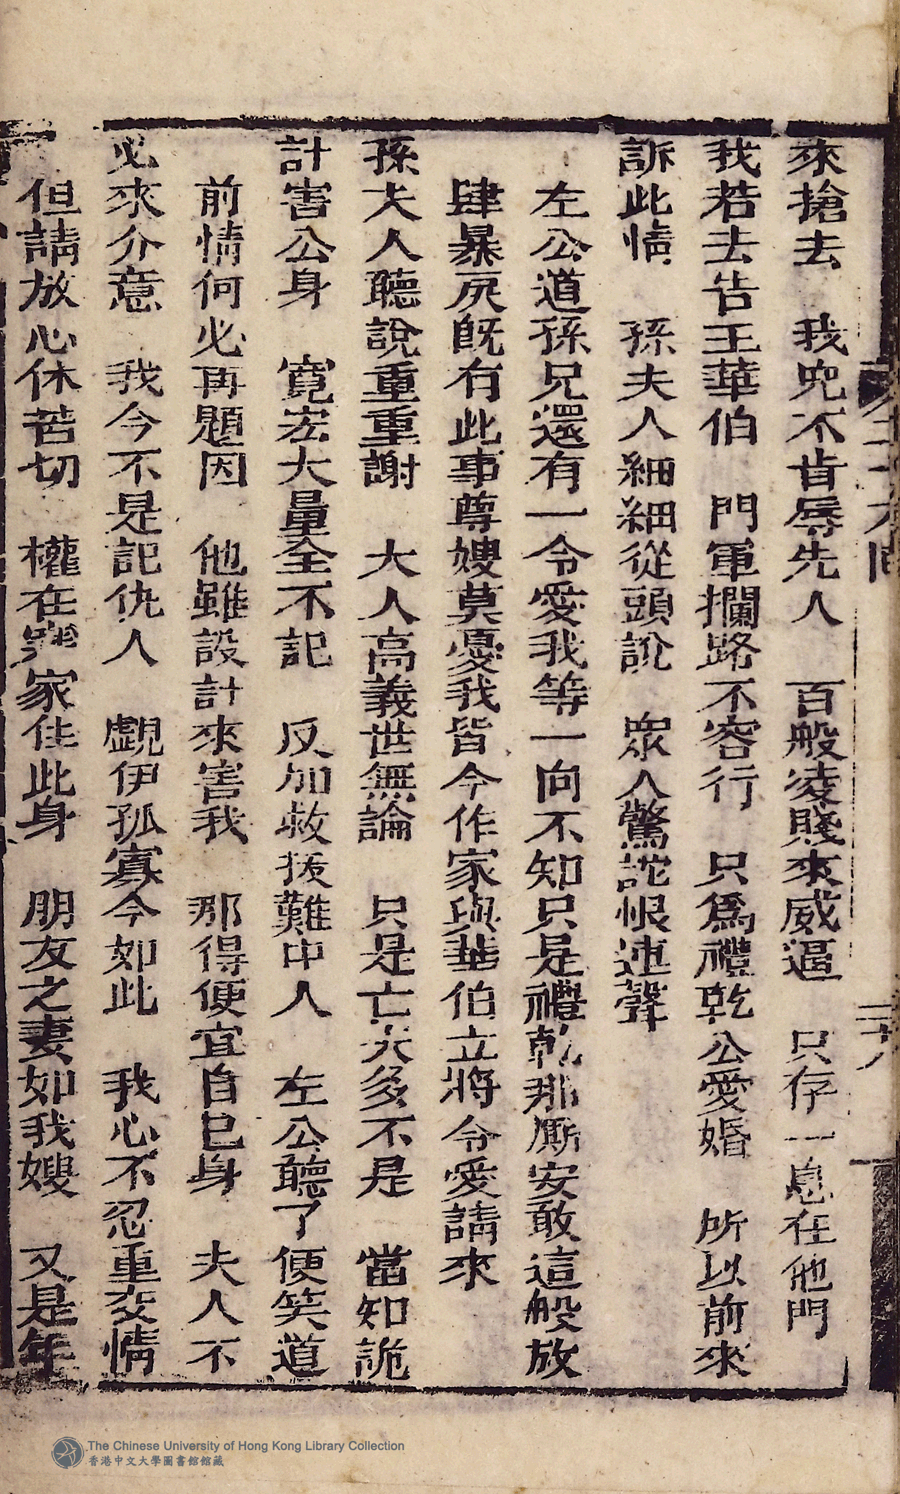 來搶去　我兜不肯辱先人　百般凌賤來威逼　只存一息在他門
我若去告王華伯　門軍攔路不容行　只爲禮乾公愛婚　所以前來
訴此情　孫夫人細細從頭說　眾人驚詫恨連聲
左公道孫兄還有一令愛我等一向不知只是禮乾那厮安敢這般放
肆暴戾既有此事尊嫂莫憂我皆今作家與華伯立將令愛請來
孫夫人聽說重重謝　大人高義世無論　只是亡夫多不是　當知詭
計害公身　寬宏大量全不記　反加救拔難中人　左公聽了便笑道
前情何必再題因　他雖設計來害我　那得便宜自已身　夫人不
必來介意　我今不是記仇人　覷伊孤寡今如此　我心不忍重交情
但請放心休苦切　權在家住此身　朋友之妻如我嫂　又是年
二十九回
二十八
The Chinese University of Hong Kong Library Collection
香港中文大學圖書館館藏